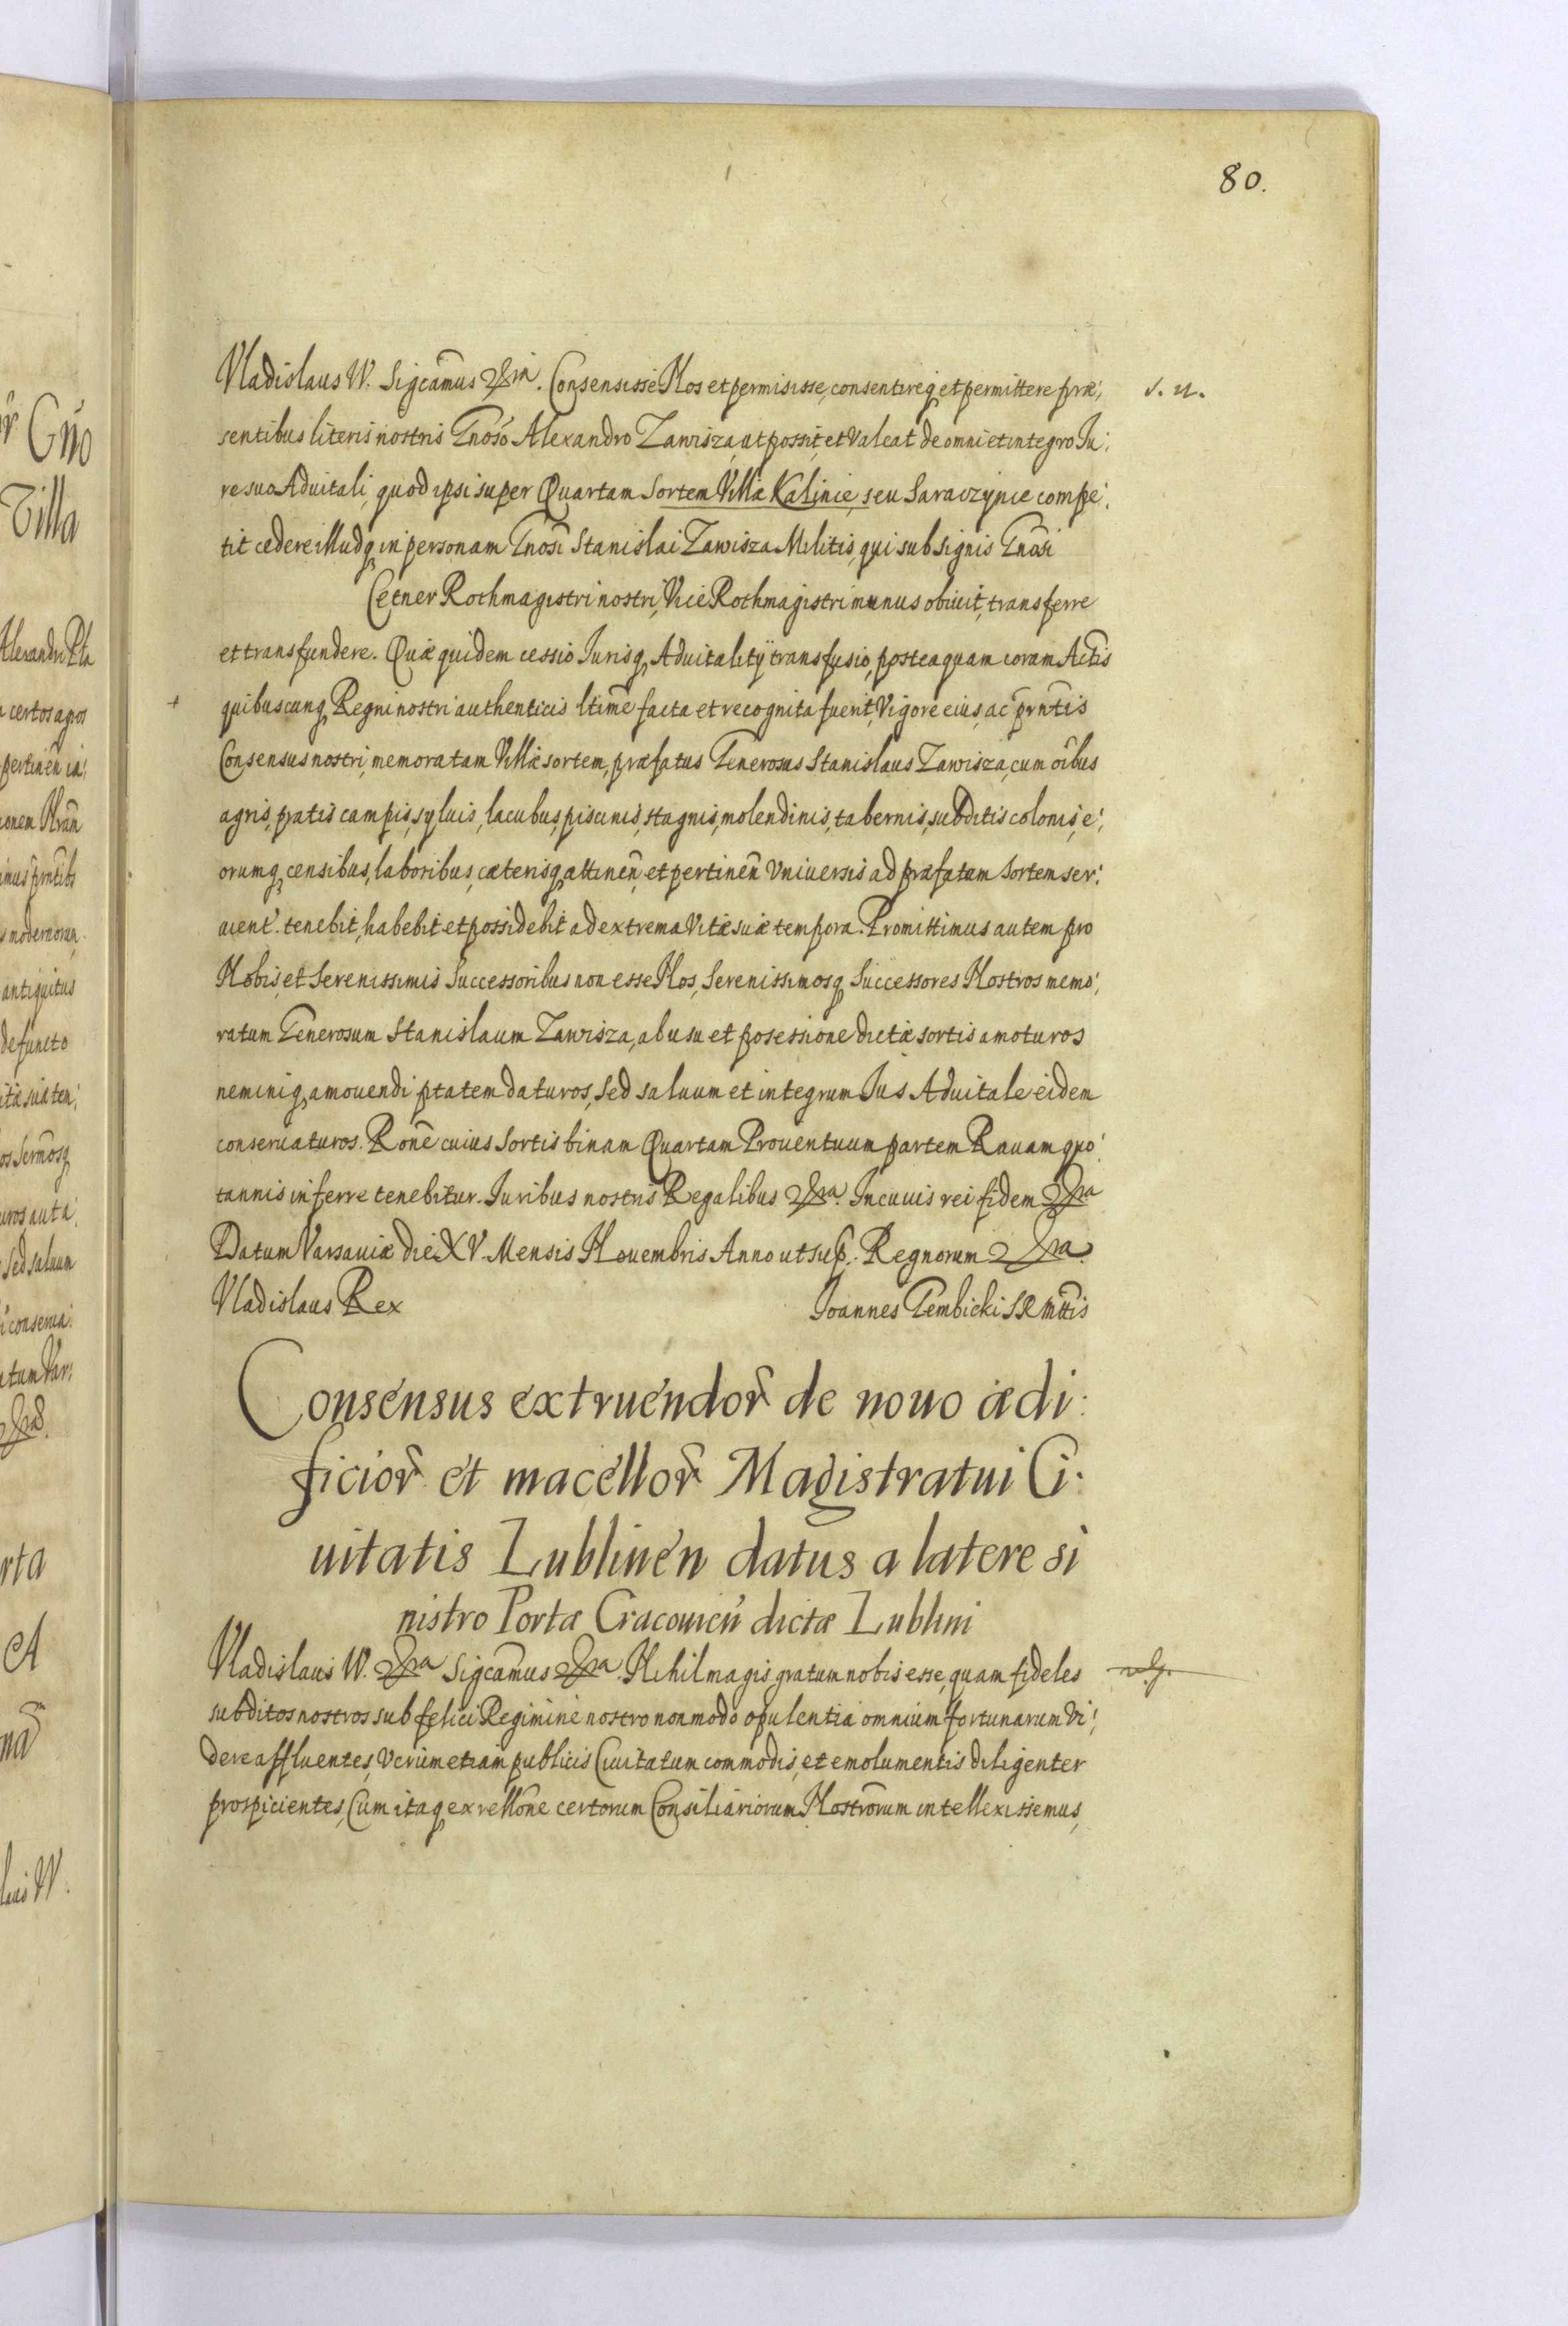 80.
Vladislaus IV. Sigcamus &ra. Consensisse Nos et permisisse, consentireq et permittere præ:
s. n.
sentibus literis nostris Gnoso Alexandro Zawisza, ut possit et valeat de omni et integro Iu:
re suo Aduitali, quod ipsi super Quartam Sortem Villæ Kalinie, seu Saraczynie compe:
tit cedere illudq in personam Gnosi Stanislai Zawisza Militis, qui sub signis Gnosi
Cetner Rothmagistri nostri, Vice Rothmagistri munus obiuit, transferre
et transfundere. Quæ quidem cessio Iurisq Aduitalitÿ transfusio, posteaquam coram Actis
quibuscunq Regni nostri authenticis ltime facta et recognita fuerit, Vigore eius, ac prntis
Consensus nostri, memoratam Villæ sortem, præfatus Generosus Stanislaus Zawisza, cum oibus
agris, pratis campis, syluis, lacubus, piscinis, stagnis, molendinis, tabernis, subditis colonis, e:
orumq censibus, laboribus, cæterisq attinen, et pertinen Vniuersis ad præfatam Sortem ser:
uient. tenebit, habebit et possidebit ad extrema Vitæ suæ tempora. Promittimus autem pro
Nobis, et Serenissimis Successoribus non esse Nos, Serenissimosq Successores Nostros memo:
ratum Generosum Stanislaum Zawisza, ab usu et posessione dictæ sortis amoturos
neminiq, amouendi ptatem daturos, sed saluum et integrum Ius Aduitale eidem
conseruaturos. Rone cuius Sortis binam Quartam Prouentuum partem Rauam quo:
tannis inferre tenebitur. Iuribus nostris Regalibus &ra. In cuius rei fidem &ra
Datum Varsauiæ die XV. Mensis Nouembris Anno ut sup. Regnorum &ra.
Vladislaus Rex Ioannes Gembicki SR Mttis
Consensus extruendor de nouo ædi:
ficior et macellor Magistratui Ci:
uitatis Lublinen datus a latere si
nistro Portæ Cracouien dictæ Lublini
Vladislaus IV. &ra Sigcamus &ra. Nihil magis gratum nobis esse, quam fideles
subditos nostros sub felici Regimine nostro non modo opulentia omnium fortunarum vi:
dere affluentes, verum etiam publicis Ciuitatum commodis, et emolumentis diligenter
prospicientes, Cum itaq ex rellone certorum Consiliariorum Nostrorum intellexissemus,